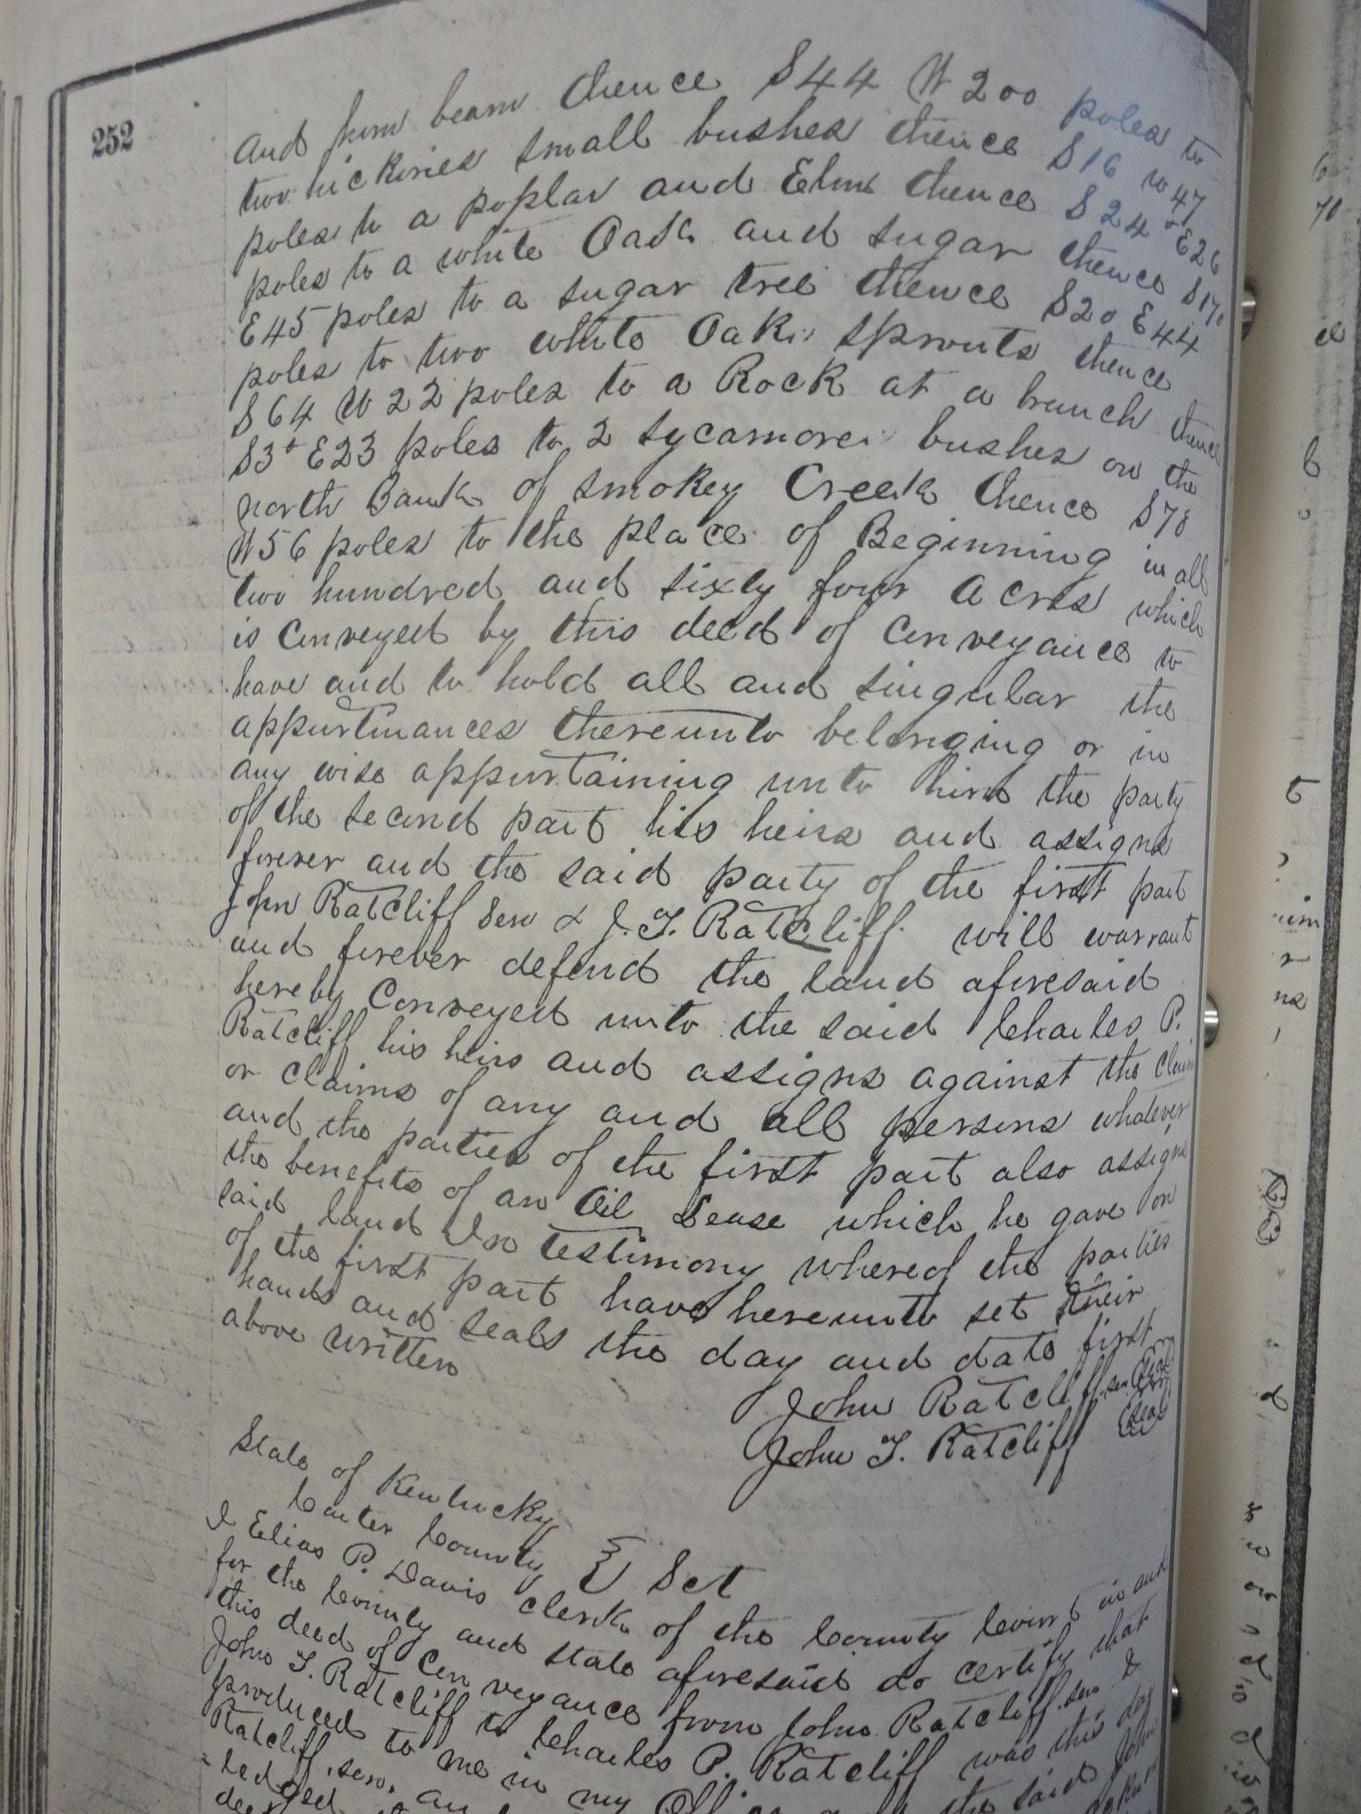 252
and horn beam thence S44 W200 poles to
two hickories small bushes thence S16 W47
poles to a poplar and Elm thence S24° E26
poles to a white Oak and sugar thence S17°
E45 poles to a sugar tree thence S20 E44
poles to two white Oak sprouts thence
S64 W22 poles to a Rock at a branch thence
S3° E23 poles to 2 sycamore bushes on the
north Bank of smokey Creek thence S78
W56 poles to the place of Beginning in all
two hundred and sixty four acres which
is Conveyed by this deed of Conveyance to
have and to hold all and singular the
appurtinances thereunto belonging or in
any wise appurtaining unto him the party
of the second part his heirs and assigns
forever and the said party of the first part
John Ratcliff Sen & J. T. Ratcliff will warrant
and forever defend the land aforesaid
hereby Conveyed unto the said Charles P.
Ratcliff his heirs and assigns against the claim
or claims of any and all persons whatever
and the parties of the first part also assigns
the benefits of an Oil Lease which he gave on
said land In testimony whereof the parties
of the first part have hereunto set their
hands and seals the day and date first
above written
John Ratcliff sen (Seal)
John T. Ratcliff (Seal)
State of Kentucky
Carter County } Sct
I Elias P. Davis clerk of the County Court in and
for the County and state aforesaid do certify that
this deed of Conveyance from John Ratcliff sen &
John T. Ratcliff to Charles P. Ratcliff was this day
produced to me in my Office the said John
Ratcliff, sen, an
ledged